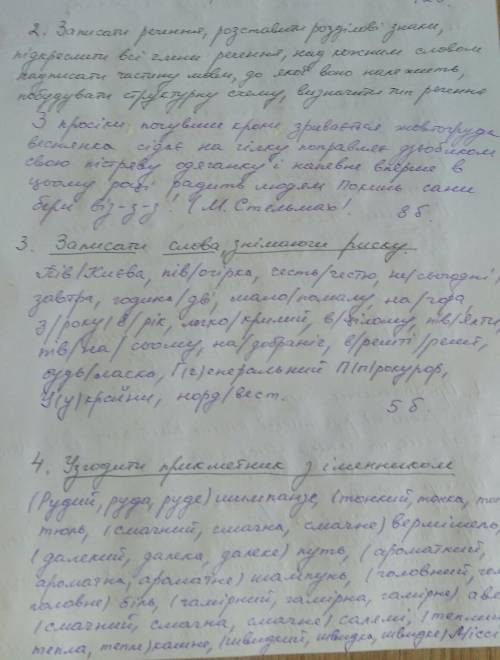 2. Записати речення, розставити розділові знаки,
підкреслити всі члени речення, над кожним словом
надписати частину мови, до якої воно належить,
побудувати структурну схему, визначити тип речення
З просіки, почувши кроки зривається жовтогруда
веснянка сідає на гілку поправляє дзьобиком
свою пістряву одяганку і напевне вперше в
цьому році радить людям Покинь сани
бери віз-з-з! (М. Стельмах).
8 б.
3. Записати слова, знімаючи риску.
Пів/Києва, пів/огірка, честь/честю, не/сьогодні/
завтра, година/дві, мало/помалу, на/гора
з/року/в/рік, легко/крилий, в/цілому, пів/Ялти,
пів/на/сьому, на/добраніч, в/решті/решт,
будь/ласка, Г(г)енеральний П(п)рокурор,
У(у)країни, норд/вест.
5 б.
4. Узгодити прикметник з іменником
(Рудий, руда, руде) шимпанзе, (тонкий, тонка,
тюль, (смачний, смачна, смачне) вермішель,
(далекий, далека, далеке) путь, (ароматний,
ароматна, ароматне) шампунь, (головний,
головне) біль, (чамірний, чамірна, чамірне)
(смачний, смачна, смачне) салямі, (теплий
тепла, тепле) кашне, (швидкий, швидка, швидке)